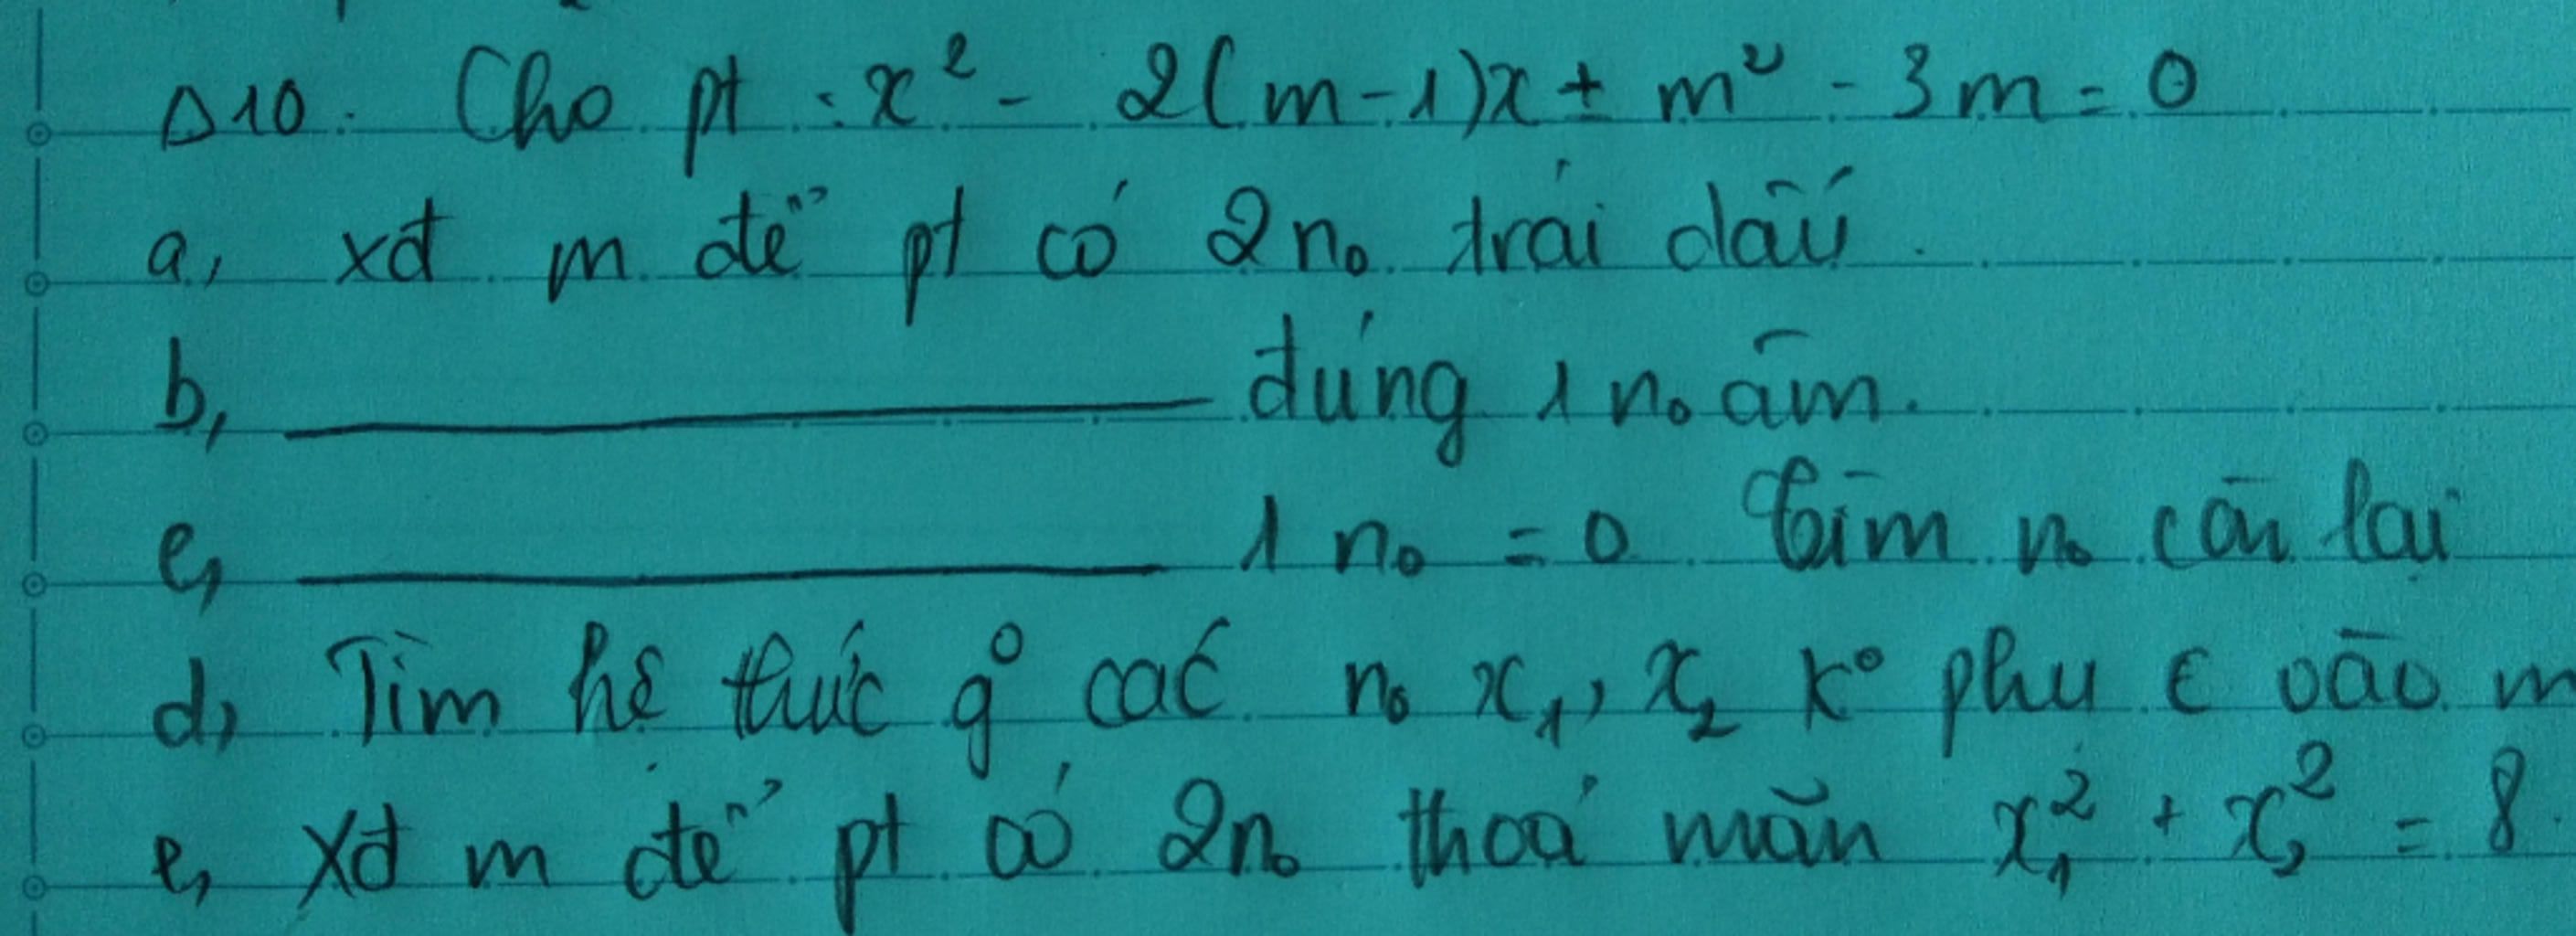 D10. Cho pt : x² - 2(m-1)x + m² - 3m = 0
a, xđ m để pt có 2 n₀ trái dấu.
b, ———— đúng 1 n₀ âm.
c, ———— 1 n₀ = 0 Tìm n₀ còn lại
d, Tìm hệ thức g° các n₀ x₁, x₂ k° phụ € vào m
e, Xđ m để pt có 2n₀ thoả mãn x₁² + x₂² = 8.